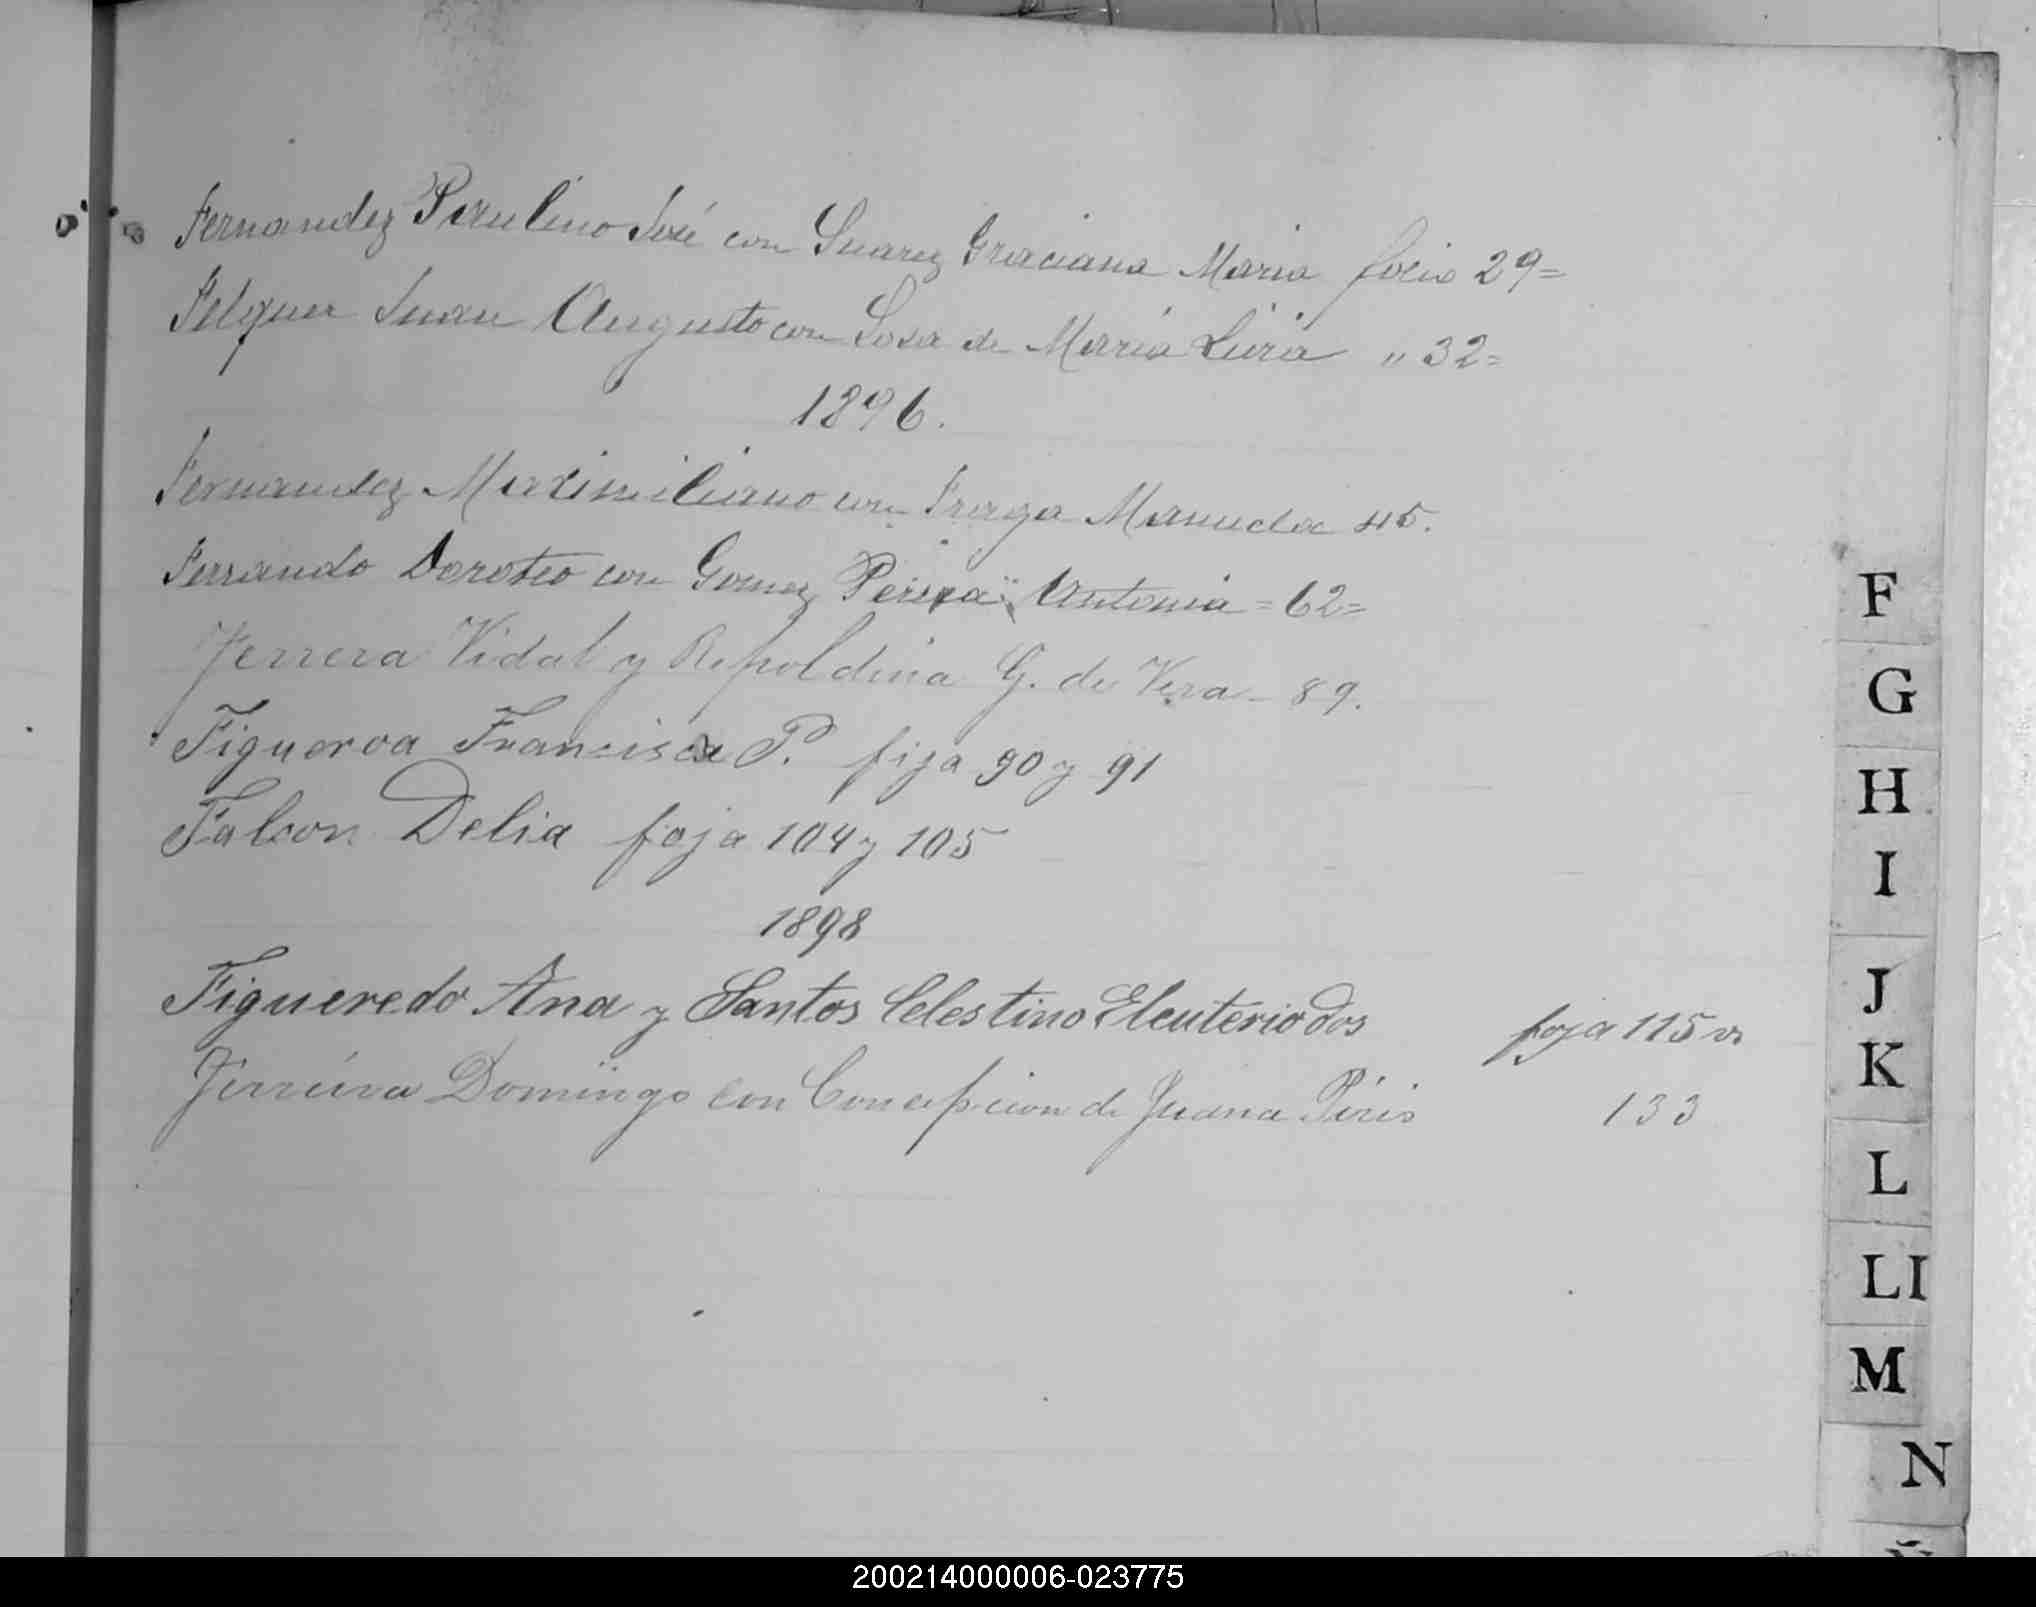 Fernandez Paulino José con Suarez Graciana Maria folio 29=
Felquer Juan Augusto con Sosa de Maria Livia " 32=
1896.
Fernandez Maximiliano con Fraga Manuela 45.
Ferrando Doroteo con Gomez Antonia = 62=
Ferrera Vidal y G. de Vera - 89.
Figueroa Francisca P. foja 90 y 91
Falcon Delia foja 104 y 105
1898
Figueredo Ana y Santos Celestino Eleuterio dos foja 115 v
Ferreira Domingo con Concepcion de Juana Piris 133
F
G
H
I
J
K
L
Ll
M
N
200214000006-023775